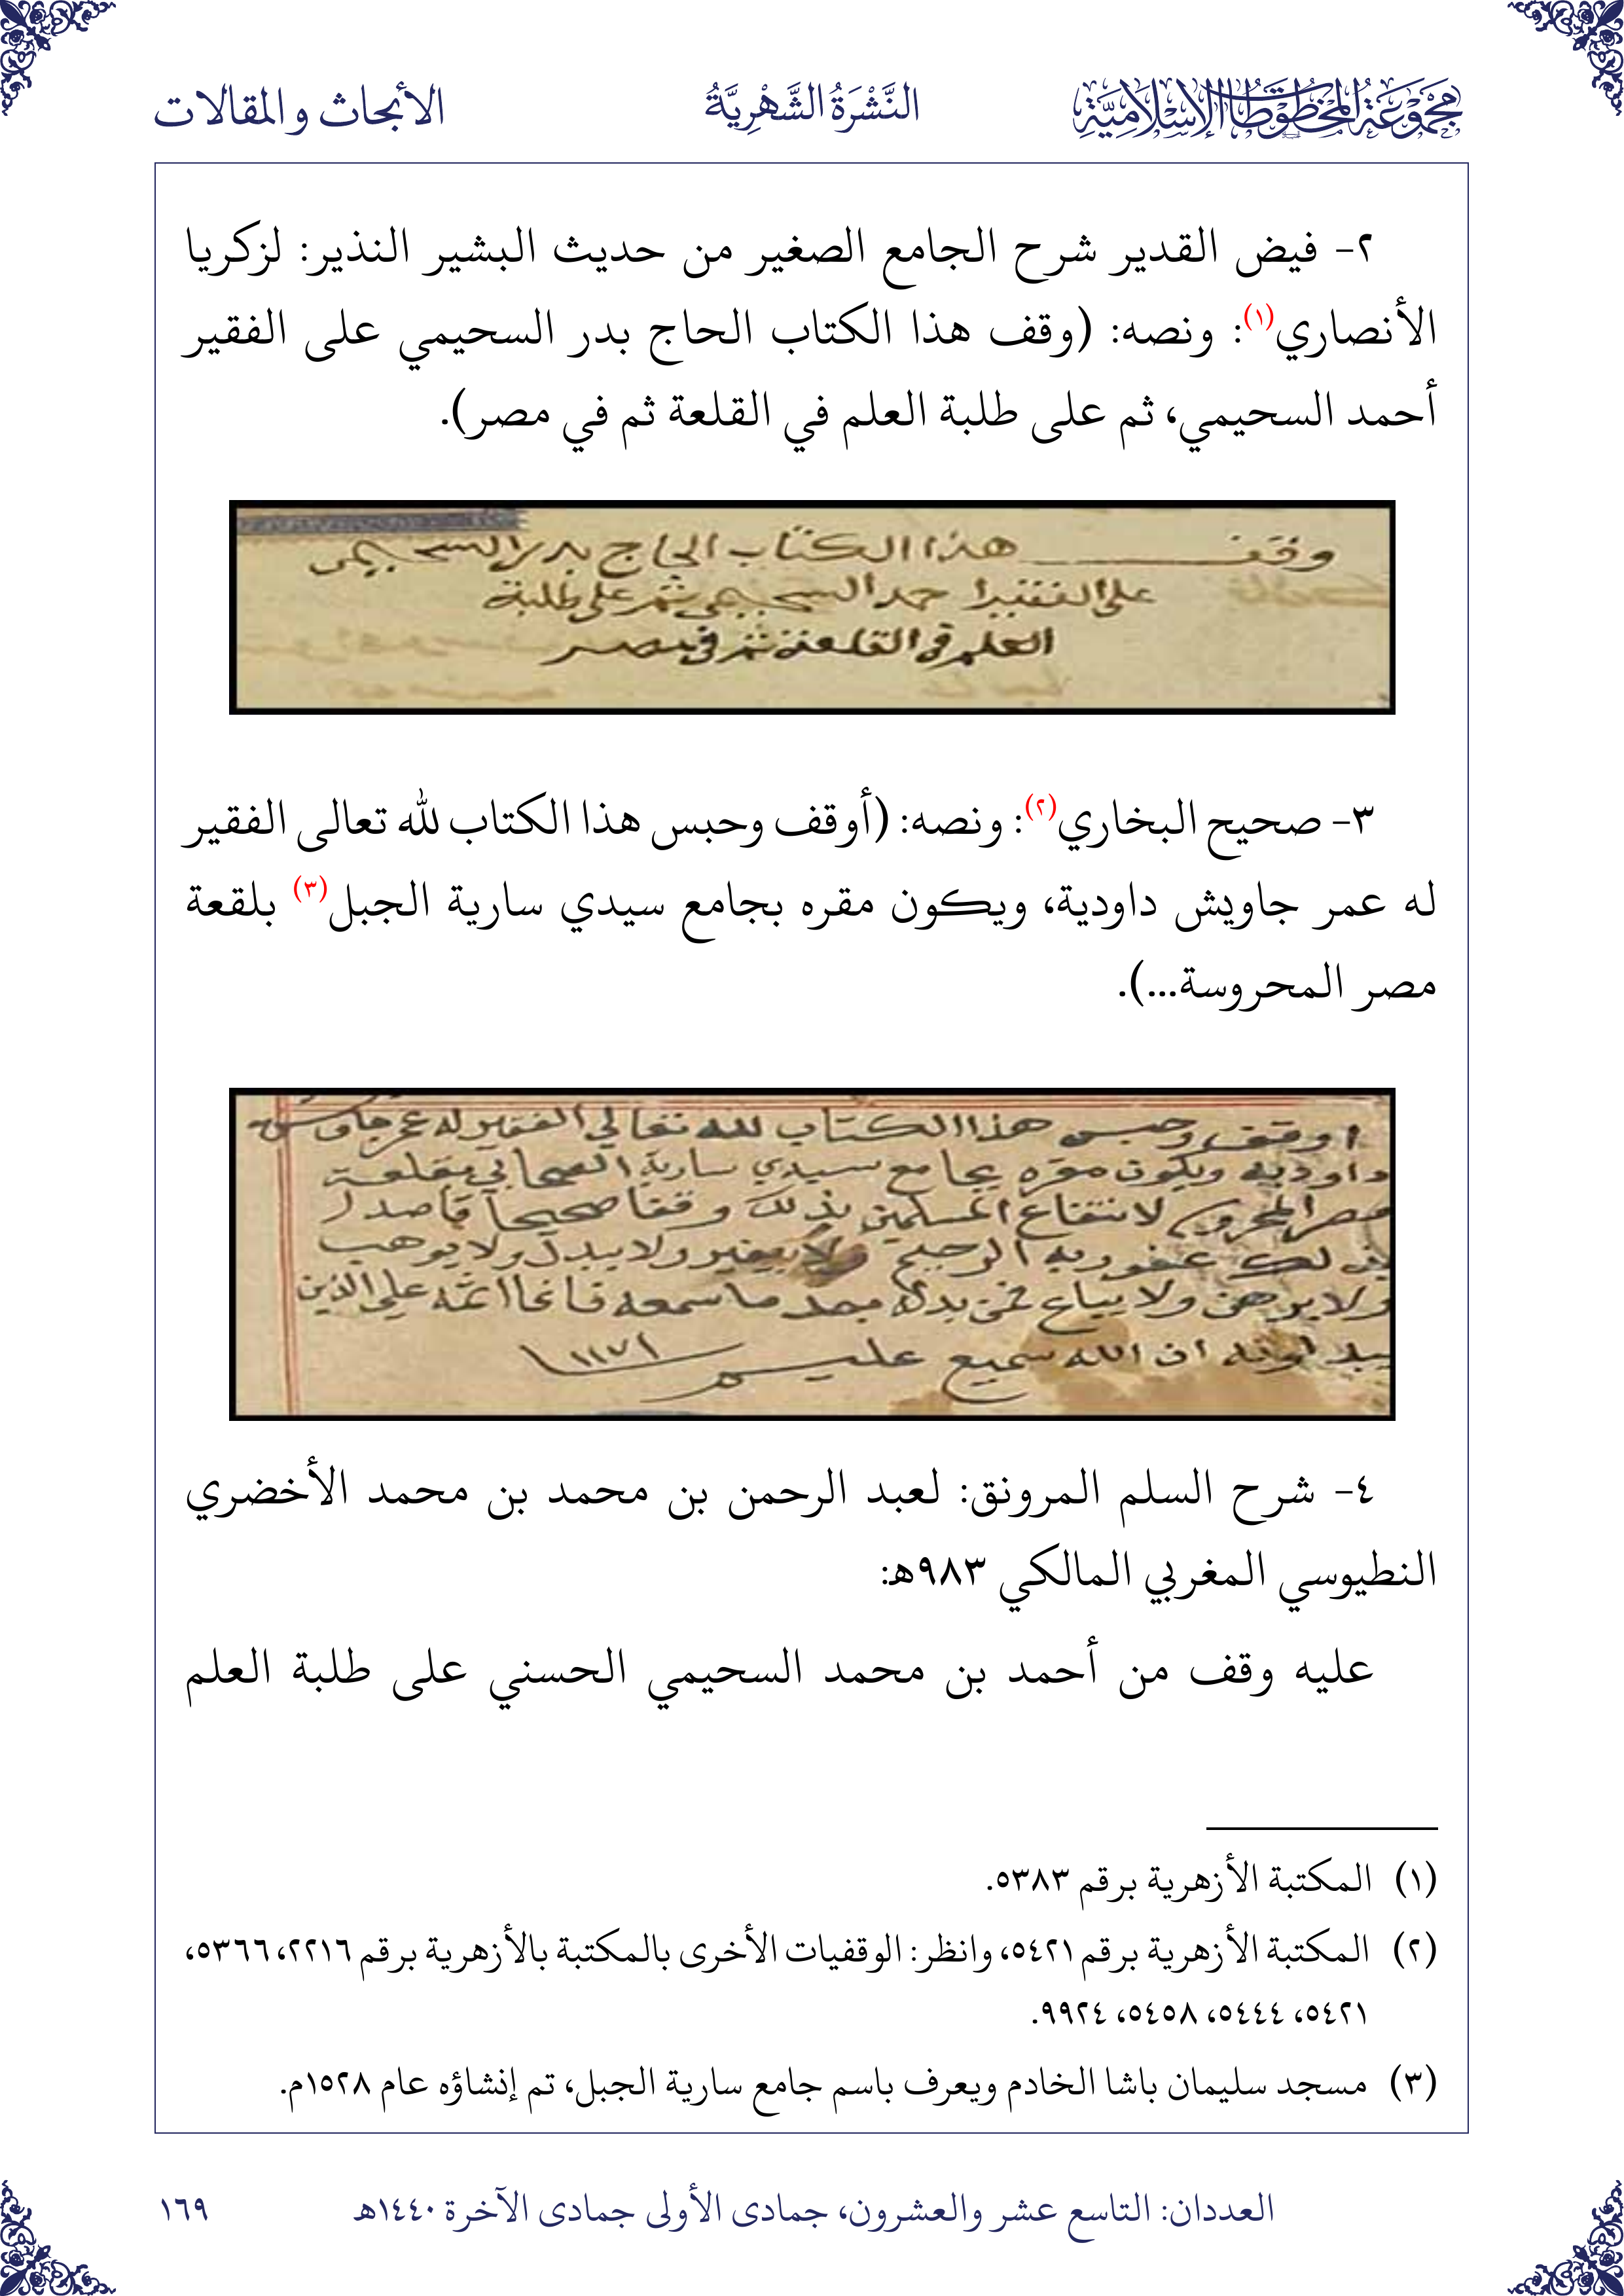 مَجْمُوعَةُ المَخْطُوطَاتِ الإِسْلَامِيَّةِ
النَّشْرَةُ الشَّهْرِيَّةُ
الأبحاث والمقالات
٢- فيض القدير شرح الجامع الصغير من حديث البشير النذير: لزكريا
الأنصاري(١): ونصه: (وقف هذا الكتاب الحاج بدر السحيمي على الفقير
أحمد السحيمي، ثم على طلبة العلم في القلعة ثم في مصر).
وقف هذا الكتاب الحاج بدر السحيمي
على الفقير احمد السحيمي ثم على طلبة
العلم في القلعة ثم في مصر
٣- صحيح البخاري(٢): ونصه: (أوقف وحبس هذا الكتاب لله تعالى الفقير
له عمر جاويش داودية، ويكون مقره بجامع سيدي سارية الجبل(٣) بلقعة
مصر المحروسة...).
اوقف وحبس هذا الكتاب لله تعالي الفقير له عمر جاويش
داوديه ويكون مقره بجامع سيدي سارية الصحابي بقلعة
مصر المحروسه لانتفاع المسلمين بذلك وقفا صحيحا قاصدا
بذلك عفو ربه الرحيم ولا يغير ولا يبدل ولا يوهب
ولا يرهن ولا يباع فمن بدله بعد ما سمعه فانما اثمه علي الذين
يبدلونه ان الله سميع عليم ١١٧١
٤- شرح السلم المرونق: لعبد الرحمن بن محمد بن محمد الأخضري
النطيوسي المغربي المالكي ٩٨٣هـ:
عليه وقف من أحمد بن محمد السحيمي الحسني على طلبة العلم
(١) المكتبة الأزهرية برقم ٥٣٨٣.
(٢) المكتبة الأزهرية برقم ٥٤٢١، وانظر: الوقفيات الأخرى بالمكتبة بالأزهرية برقم ٢٢١٦، ٥٣٦٦،
٥٤٢١، ٥٤٤٤، ٥٤٥٨، ٩٩٢٤.
(٣) مسجد سليمان باشا الخادم ويعرف باسم جامع سارية الجبل، تم إنشاؤه عام ١٥٢٨م.
العددان: التاسع عشر والعشرون، جمادى الأولى جمادى الآخرة ١٤٤٠هـ
١٦٩